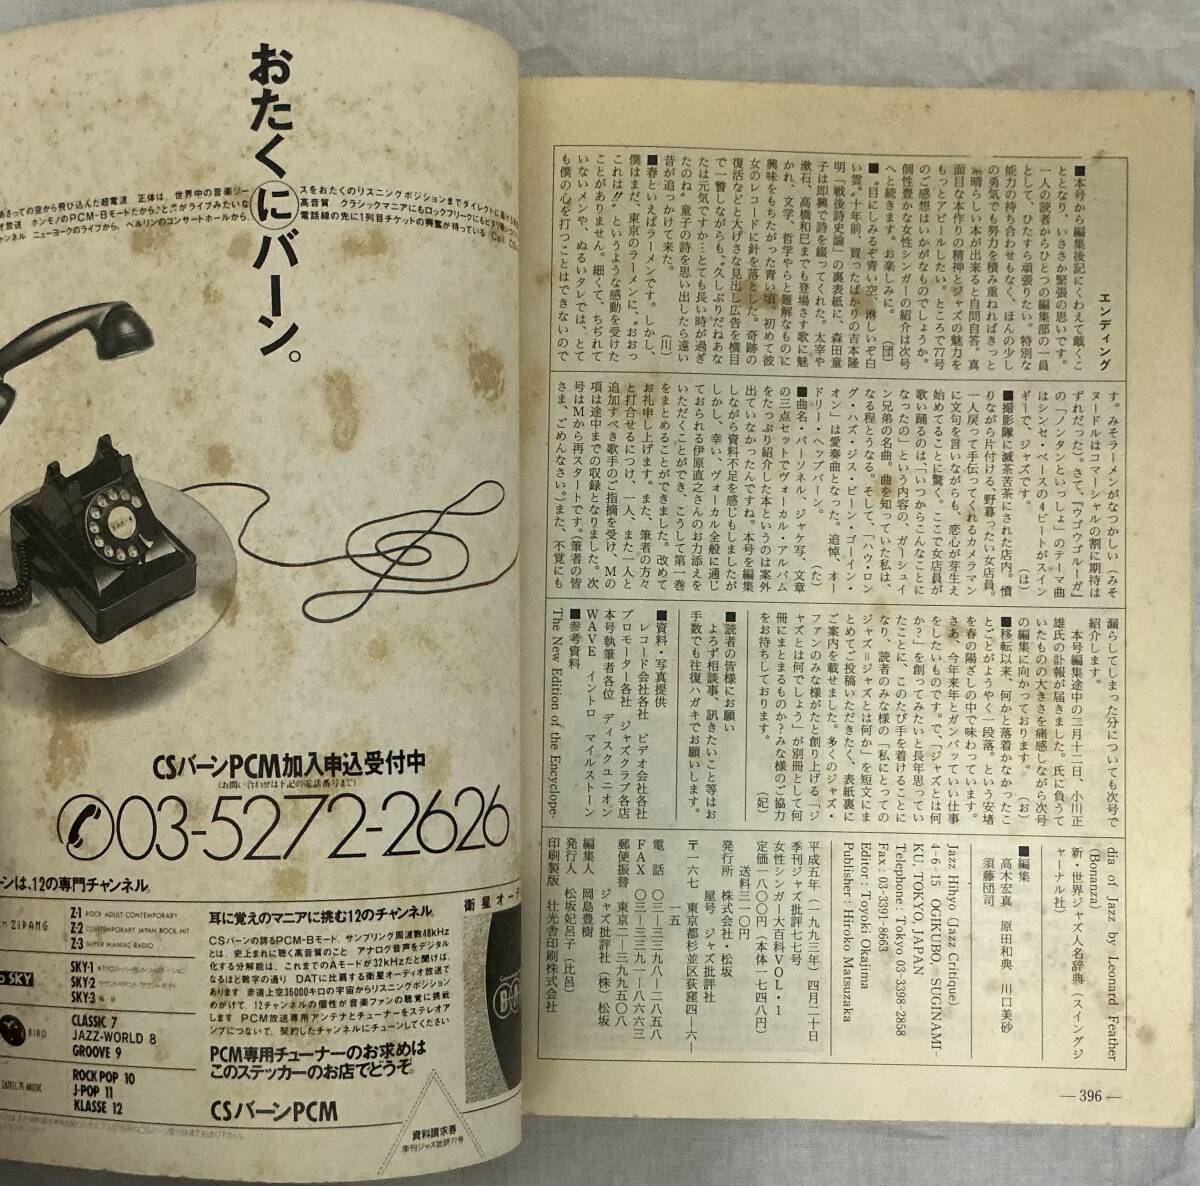 おたくにバーン。
あさっての空から飛び込んだ超電波 正体は、世界中の音楽ソー
スをおたくのリスニングポジションまでダイレクトに届ける
ホンモノのPCM-Bモードだから♪と♬がライブみたいな
高音質 クラシックマニアにもロックフリークにも
ニューヨークのライブから、ベルリンのコンサートホールから
電話線の先に1列目チケットの興奮が待っている
CSバーンPCM加入申込受付中
(お問い合わせは下記の電話番号まで)
03-5272-2626
ーンは、12の専門チャンネル。
Z-1 ROCK ADULT CONTEMPORARY
Z-2 CONTEMPORARY JAPAN ROCK, HIT
Z-3 SUPER MANIAC RADIO
SKY
SKY-1
SKY-2
SKY-3
BIRD
CLASSIC 7
JAZZ-WORLD 8
GROOVE 9
SATELLITE MUSIC
ROCK POP 10
J-POP 11
KLASSE 12
衛星オーデ
耳に覚えのマニアに挑む12のチャンネル。
CSバーンの誇るPCM-Bモード、サンプリング周波数48kHz
とは、史上まれに聴く高音質のこと アナログ音声をデジタル
化する分解能は、これまでのAモードが32kHzだと聞けば、
なるほど数字の通り DATに比肩する衛星オーディオ放送で
あります 赤道上空36000キロの宇宙からリスニングポジション
めがけて、12チャンネルの個性が音楽ファンの聴覚に挑戦
します PCM放送専用アンテナとチューナーをステレオア
ンプにつないで、契約したチャンネルにチューンしてください
PCM専用チューナーのお求めは
このステッカーのお店でどうぞ。
CSバーンPCM
資料請求券
季刊ジャズ批評77号
エンディング
■本号から編集後記にくわえて戴くこ
ととなり、いささか緊張の思いです。
一人の読者からひとつの編集部の一員
として、ひたすら頑張りたい。特別な
能力の持ち合わせもなく、ほんの少し
の勇気でも努力を積み重ねればきっと
素晴らしい本が出来ると自問自答。真
面目な本作りの精神とジャズの魅力を
もっとアピールしたい。ところで77号
のご感想はいかがなものでしょうか。
個性豊かな女性シンガーの紹介は次号
へと続きます。お楽しみに。 (団)
■〝目にしみるぞ青い空、淋しいぞ白
い雲〟二十年前、買ったばかりの吉本隆
明「戦後詩史論」の裏表紙に、森田童
子は即興で詩を綴ってくれた。太宰や
漱石、高橋和巳までも登場さす歌に魅
かれ、文学、哲学やらと難解なものに
興味をもちたがった青い頃、初めて彼
女のレコードに針を落とした。奇跡の
復活などと大げさな見出し広告を横目
で一瞥しながらも、〝久しぶりだねあな
たは元気ですか…とても長い時が過ぎ
たのね〟童子の詩を思い出したら遠い
昔が追っかけて来た。 (川)
■春といえばラーメンです。しかし、
僕はまだ、東京のラーメンに、〝おおっ
これは!!〟というような感動を受けた
ことがありません。細くて、ちぢれて
いないメンや、ぬるいタレでは、とて
も僕の心を打つことはできないので
す。みそラーメンがなつかしい(みそ
ヌードルはコマーシャルの割に期待は
ずれだった)。さて、『ウゴウゴルーガ』
の「ノンタンといっしょ」のテーマ曲
はシンセ・ベースの4ビートがスイン
ギーで、ジャズです。 (は)
■撮影隊に滅茶苦茶にされた店内。憤
りながら片付ける、野暮ったい女店員。
一人戻って手伝ってくれるカメラマン
に文句を言いながらも、恋心が芽生え
始めてることに驚く。ここで女店員が
歌い踊るのは、「いつからこんなことに
なったの」という内容の、ガーシュイ
ン兄弟の名曲。曲を知っていた私は、
なる程とうなる。そして、「ハウ・ロン
グ・ハズ・ジス・ビーン・ゴーイン・
オン」は愛奏曲となった。追悼、オー
ドリー・ヘップバーン。 (た)
■曲名・パーソネル、ジャケ写、文章
の三点セットでヴォーカル・アルバム
をたっぷり紹介した本というのは案外
出ていなかったんですね。本号を編集
しながら資料不足を感じもしましたが
しかし、幸い、ヴォーカル全般に通じ
ておられる伊原直之さんのお力添えを
いただくことができ、こうして第一巻
をまとめることができました。改めて
お礼申し上げます。また、筆者の方々
と打合せるにつけ、一人、また一人と
追加すべき歌手のご指摘を受け、Mの
項は途中までの収録となりました。次
号はMから再スタートです。(筆者の皆
さま、ごめんなさい。)また、不覚にも
漏らしてしまった分についても次号で
紹介します。
本号編集途中の三月十二日、小川正
雄氏の訃報が届きました。氏に負うて
いたものの大きさを痛感しながら次号
の編集に向かっております。 (お)
■移転以来、何かと落着かなかったこ
とごとがようやく一段落。という安堵
を春の陽ざしの中で味わっています。
さあ、今年来年とガンバッていい仕事
をしたいものです。で、「ジャズとは何
か?」を創ってみたいと長年思ってい
たことに、このたび手を着けることに
なり、読者のみな様の「私にとっての
ジャズ＝ジャズとは何か」を短文にま
とめてご投稿いただきたく、表紙裏に
ご案内を載せました。多くのジャズ・
ファンのみな様がたと創り上げる「ジ
ャズとは何でしょう」が別冊として何
冊にまとまるものか?みな様のご協力
をお待ちしております。 (妃)
■読者の皆様にお願い
よろず相談事、訊きたいこと等はお
手数でも往復ハガキでお願いします。
■資料・写真提供
レコード会社各社 ビデオ会社各社
プロモーター各社 ジャズクラブ各店
本号執筆者各位 ディスクユニオン
WAVE イントロ マイルストーン
■参考資料
The New Edition of the Encyclope-
dia of Jazz by Leonard Feather
(Bonanza)
新・世界ジャズ人名辞典(スイングジ
ャーナル社)
■編集
高木宏真 原田和典 川口美砂
須藤団司
Jazz Hihyo (Jazz Critique)
4-6-15 OGIKUBO, SUGINAMI-
KU, TOKYO, JAPAN
Telephone : Tokyo 03-3398-2858
Fax : 03-3391-8663
Editor : Toyoki Okajima
Publisher : Hiroko Matsuzaka
平成五年(一九九三年)四月二十日
季刊ジャズ批評七七号
女性シンガー大百科VOL・1
定価一八〇〇円(本体一七四八円)
送料三一〇円
発行所 株式会社・松坂
屋号 ジャズ批評社
〒一六七 東京都杉並区荻窪四—六—
一五
電話 〇三—三三九八—二八五八
FAX 〇三—三三九一—八六六三
郵便振替 東京二—三九九五〇八
ジャズ批評社(株)松坂
編集人 岡島豊樹
発行人 松坂妃呂子(比呂)
印刷製版 壮光舎印刷株式会社
—396—